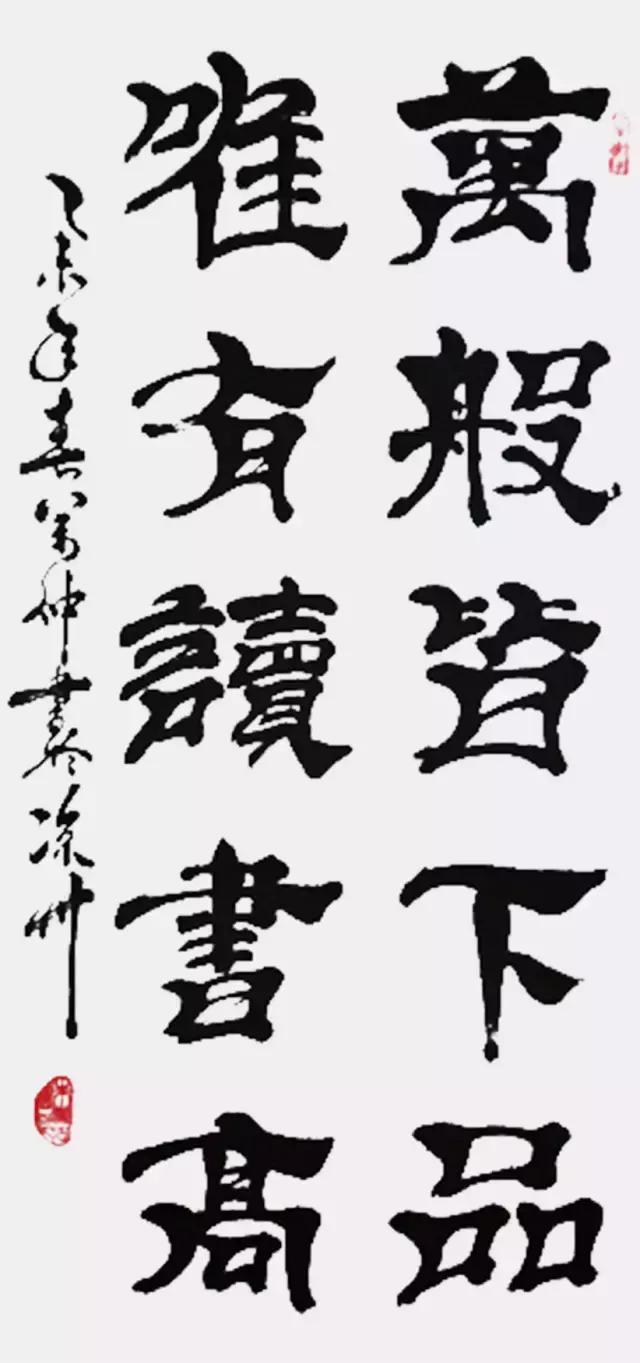 萬般皆下品
唯有讀書高
乙未年春萬仲書於涼州